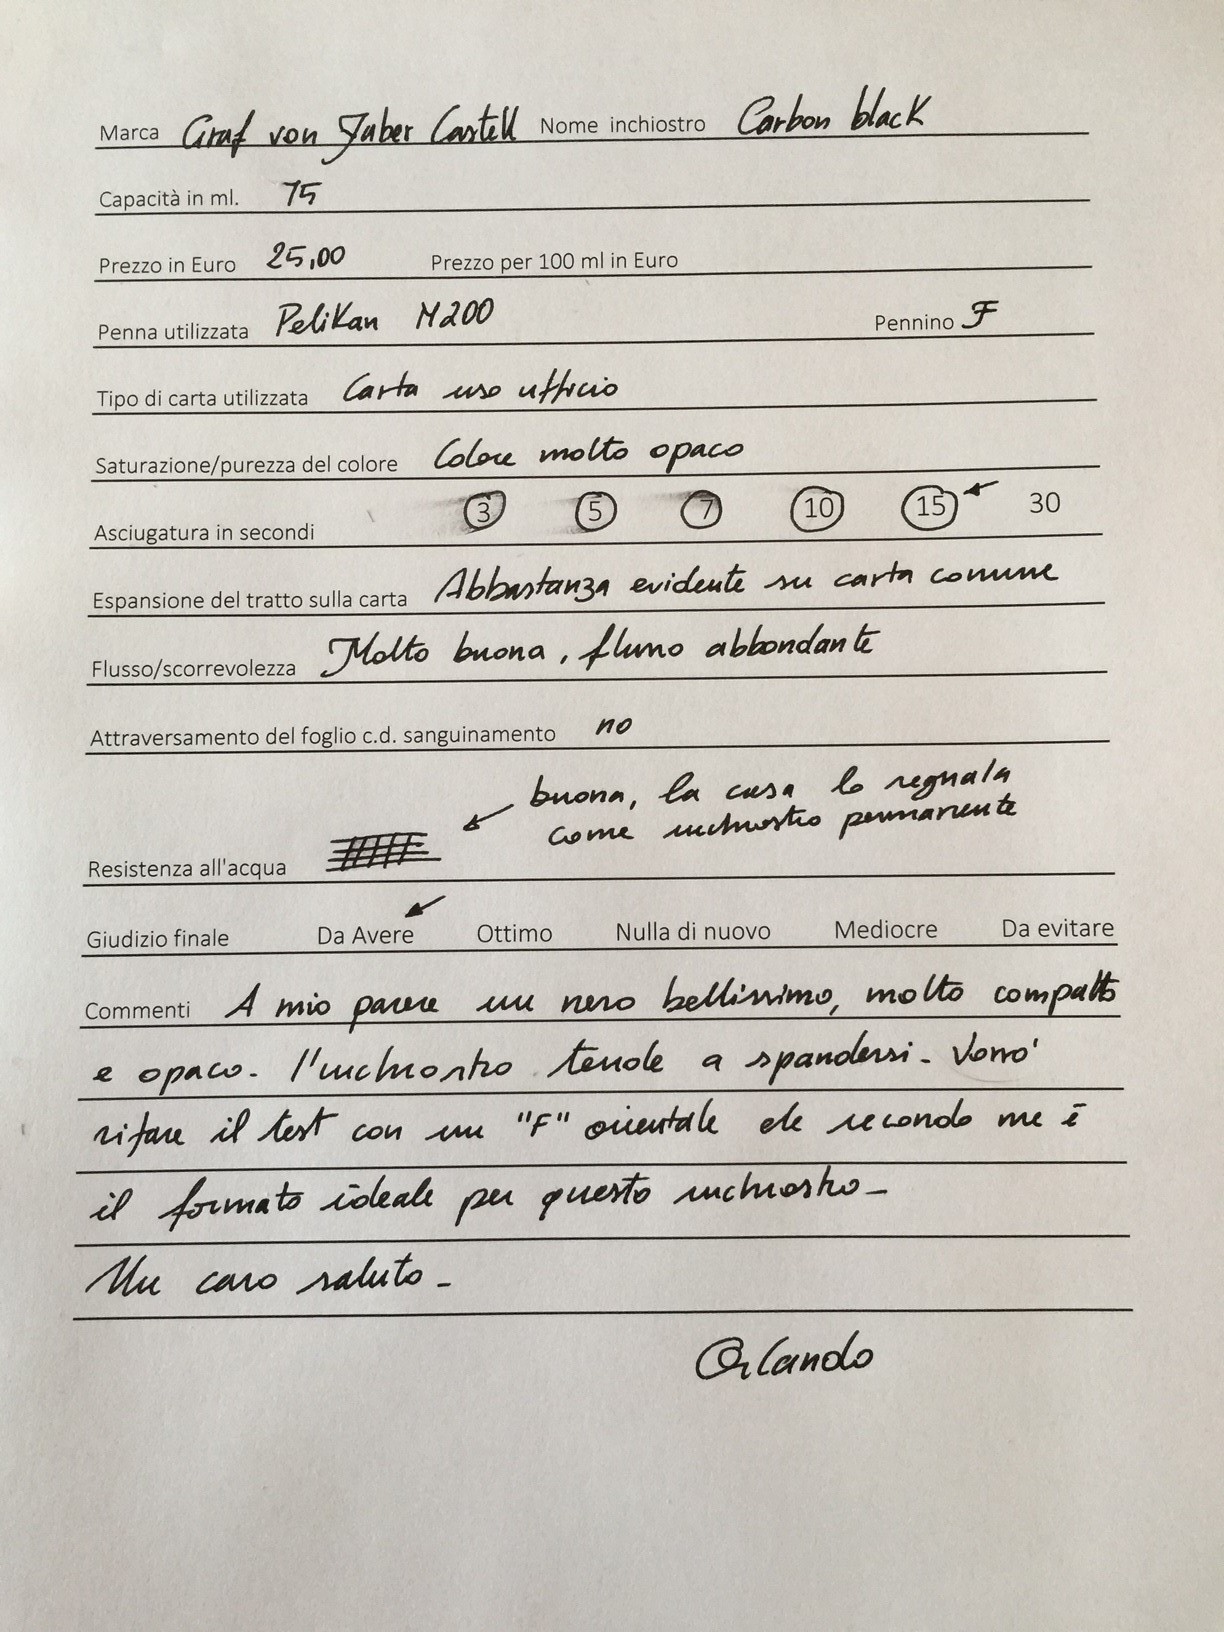 Marca Graf von Faber Castell Nome inchiostro Carbon black
Capacità in ml. 75
Prezzo in Euro 25,00 Prezzo per 100 ml in Euro
Penna utilizzata Pelikan M200 Pennino F
Tipo di carta utilizzata Carta uso ufficio
Saturazione/purezza del colore Colore molto opaco
Asciugatura in secondi 3 5 7 10 15 30
Espansione del tratto sulla carta Abbastanza evidente su carta comune
Flusso/scorrevolezza Molto buona, flusso abbondante
Attraversamento del foglio c.d. sanguinamento no
buona, la casa lo segnala
come inchiostro permanente
Resistenza all'acqua
Giudizio finale Da Avere Ottimo Nulla di nuovo Mediocre Da evitare
Commenti A mio parere un nero bellissimo, molto compatto
e opaco. l'inchiostro tende a spandersi. Vorrò
rifare il test con un "F" orientale che secondo me è
il formato ideale per questo inchiostro.
Un caro saluto.
Orlando